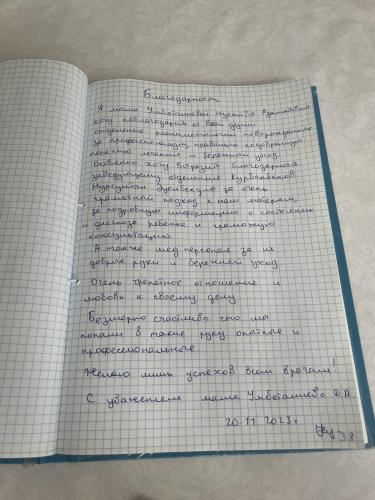 Благодарность
Я мама Умбеталиевой
хочу поблагодарить от всей души
отделение реаниматологии новорожденных
за профессионализм, правильно подобранную
лечение и бережный уход.
Особенно хочу выразить благодарность
заведующему отделения Курбанбеков
за очень
грамотный подход к нам матерям,
за подробную информацию о состоянии
и диагнозе ребенка и грамотную
консультацию.
А также мед персонал за их
добрые руки и бережный уход
Очень трепетное отношение и
любовь к своему делу
Безмерно счастлива что мы
попали в такие руки опытные и
профессиональные.
Желаю лишь успехов всем врачам!
С уважением мама Умбеталиева
20.11 2023г